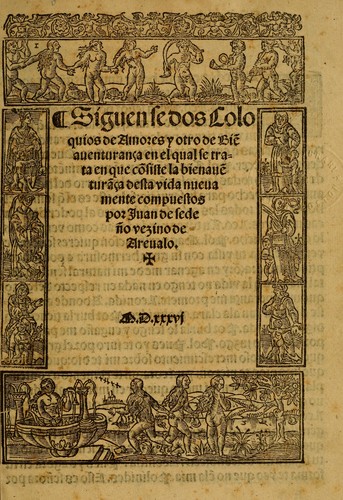 ¶ Siguen se dos Colo
quios de Amores y otro de Biẽ
auenturança en el qual se tra-
ta en que cõsiste la bienauẽ
turãça desta vida nueua
mente compuestos
por Juan de sede
ño vezino de
Areualo.
✠
M.D.xxxvj